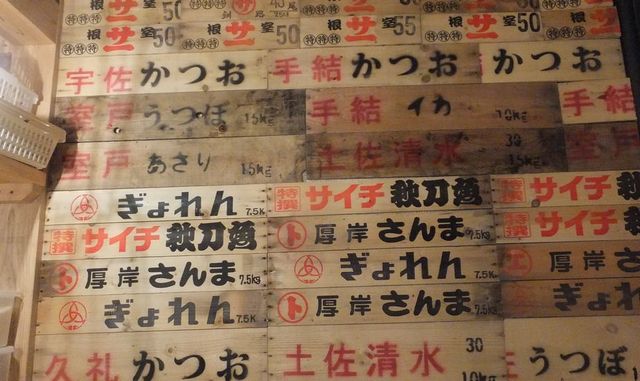 50 釧路 40尾 250 サ 50
根室 サ 50 根室 サ 50 根室 サ 55 根室 サ 50
特特特 特特特 特特特 特特特
宇佐 かつお 手結 かつお かつお
室戸 うつぼ 15kg 手結 イカ 10kg 手結
室戸 あさり 15kg 土佐清水 30 15kg 室戸
ぎょれん 7.5K 特撰 サイチ 秋刀魚 特撰 サイチ 秋刀魚
特撰 サイチ 秋刀魚 ト 厚岸 さんま 7.5kg 特撰 サイチ 秋刀魚
ト 厚岸 さんま 7.5kg ぎょれん 7.5K 厚岸 さんま
ぎょれん 7.5K ト 厚岸 さんま 7.5kg ぎょれん
久礼 かつお 土佐清水 30 10kg うつぼ